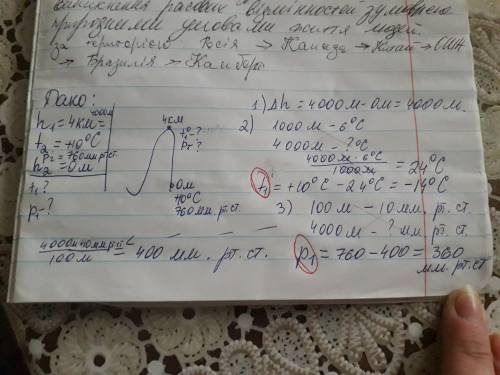 расових відмінностей зумовлено
природними умовами життя людей.
за територією Росія → Канада → Китай → США
→ Бразилія → Канберра
Дано:
h₁ = 4км = 4000м
t₂ = +10°C
P₂ = 760мм рт.ст.
h₂ = 0м
t₁ - ?
P₁ - ?
4км
t₁ - ?
P₁ - ?
0м
+10°C
760мм. рт.ст.
1) Δh = 4000м - 0м = 4000м.
2) 1000м - 6°C
4000м - ?°C
4000м · 6°C / 1000м = 24°C
t₁ = +10°C - 24°C = -14°C
3) 100м - 10мм. рт. ст.
4000м - ? мм рт. ст.
4000м·10мм рт.ст. / 100м = 400 мм. рт. ст.
P₁ = 760 - 400 = 360
мм. рт. ст